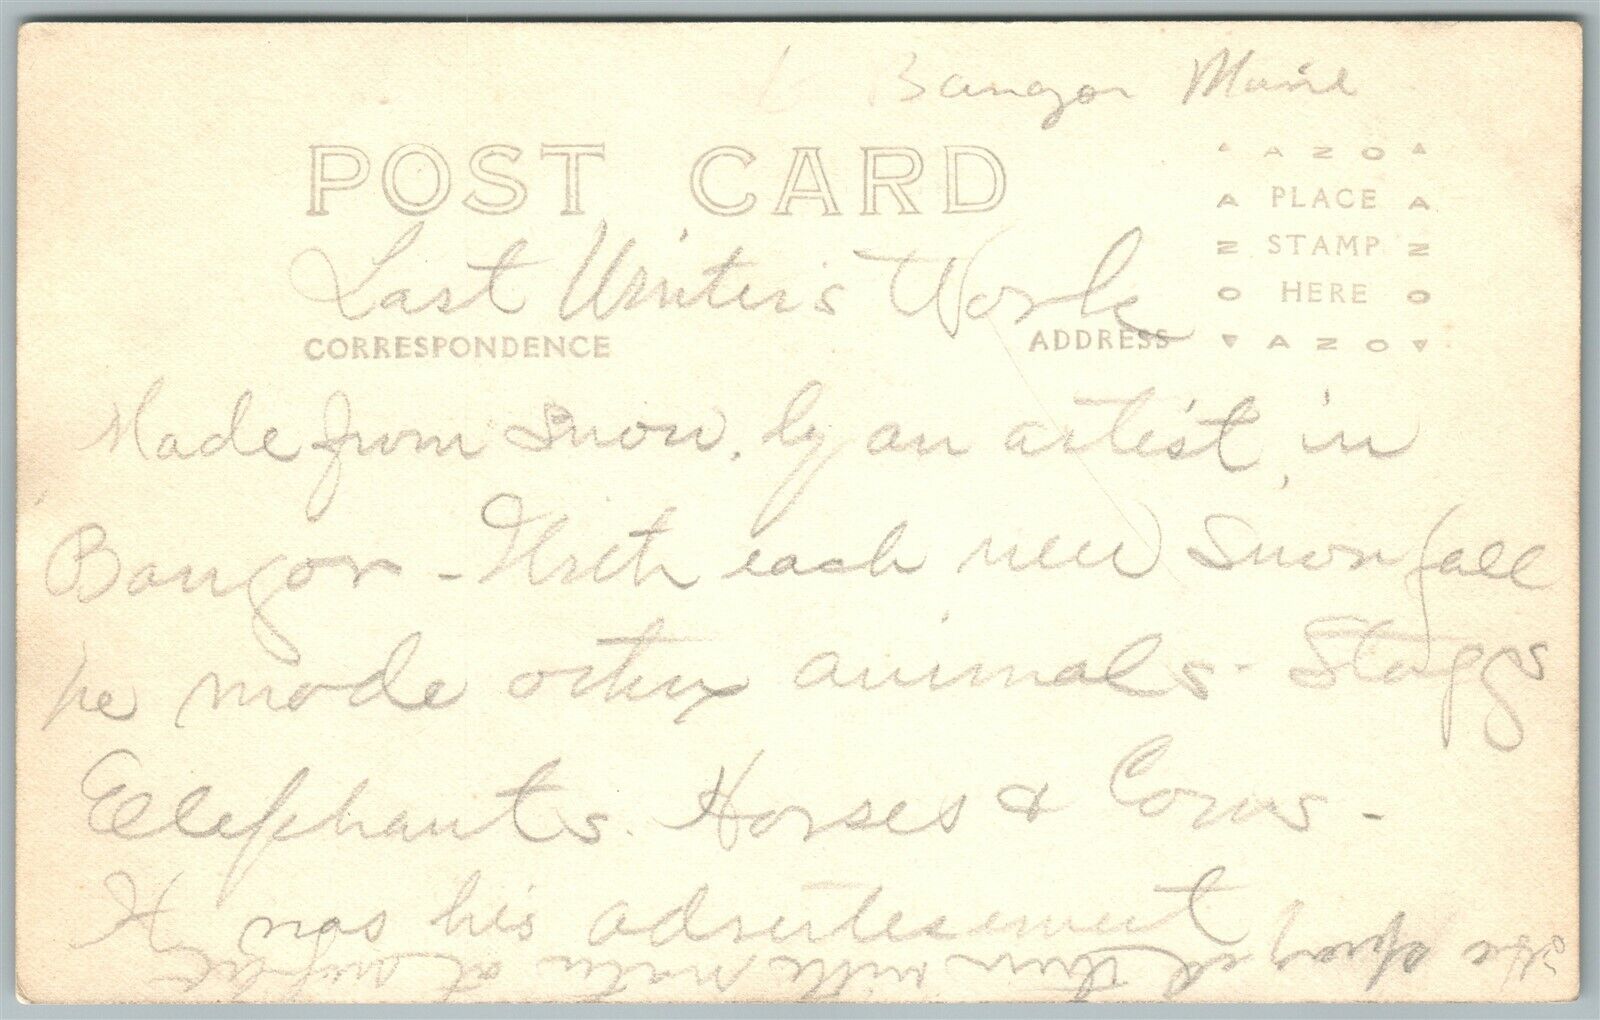 Bangor Maine
POST CARD
AZO
PLACE
STAMP
HERE
AZO
Last Winters Work
CORRESPONDENCE
ADDRESS
Made from Snow. by an artist in
Bangor - With each new Snow fall
he made other animals - Staggs
Ellephants. Horses & Cows -
It was his advertisement
He sprayed them with water at